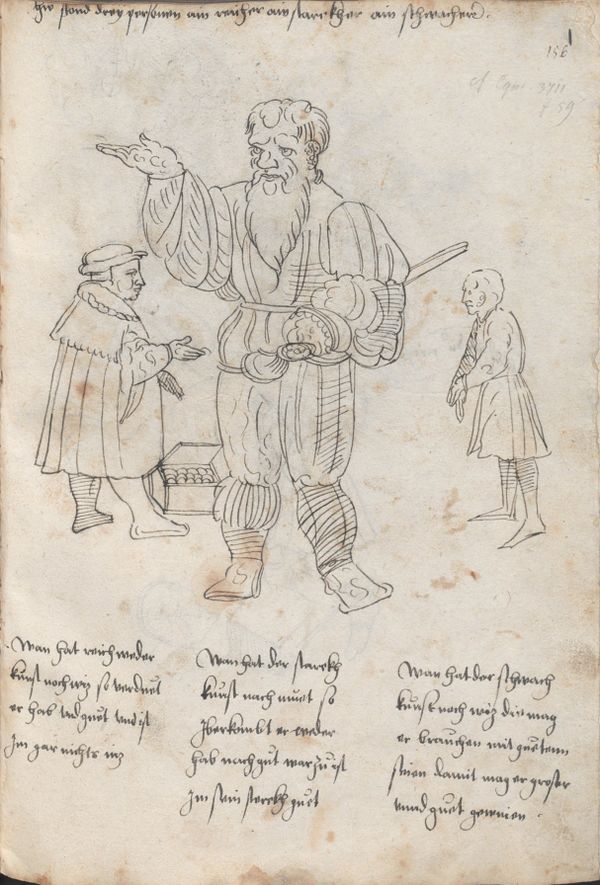 Hie stond drey personen ain reicher ain starckher ain schwacher.
1
156
cf Cgm. 3711
f 59
Wan hat reich weder
kunst noch wiz so verduet
er hab und guet und ist
Im gar nichts niz
Wan hat der starckh
kunst nach muet so
Iberkombt er weder
hab nach gut warzu ist
Im sein sterckh guet
Wan hat der schwach
kunst noch wiz die mag
er brauchen mit guetem
sinen damit mag er groser
unnd guet gewinen.